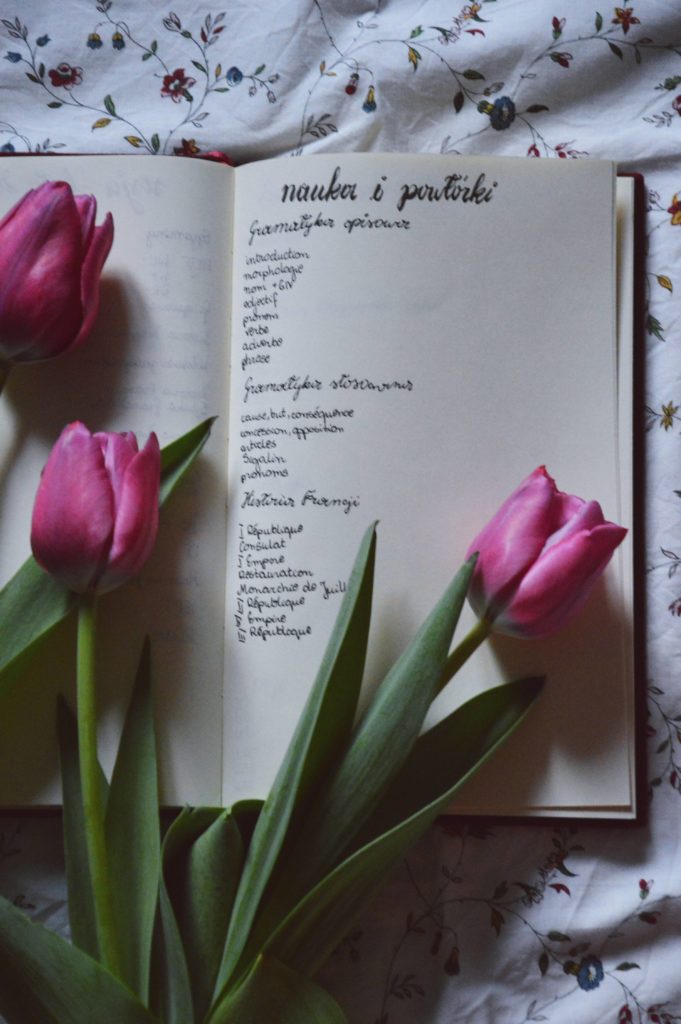 nauka i powtórki
Gramatyka opisowa
introduction
morphologie
nom + GN
adjectif
pronom
verbe
adverbe
phrase
Gramatyka stosowana
cause, but, conséquence
concession, opposition
articles
Sigalin
pronoms
Historia Francji
I République
Consulat
I Empire
Restauration
Monarchie de Juill
II République
II Empire
III République